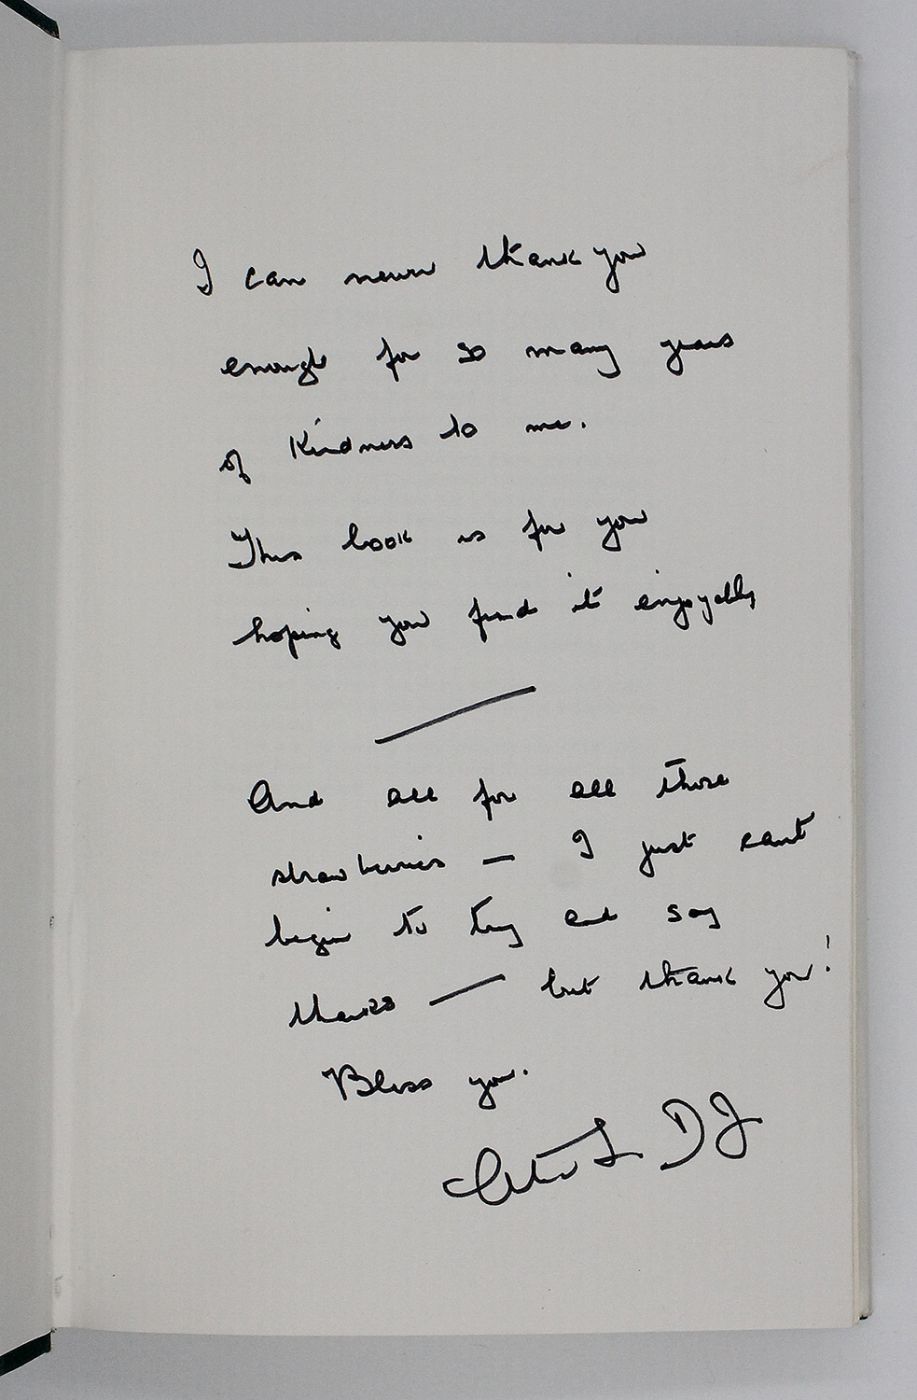 I can never thank you
enough for so many years
of kindness to me.
This book is for you
hoping you find it enjoyable
And all for all those
strawberries — I just can't
begin to try and say
thanks — but thank you!
Bless you.
DJ